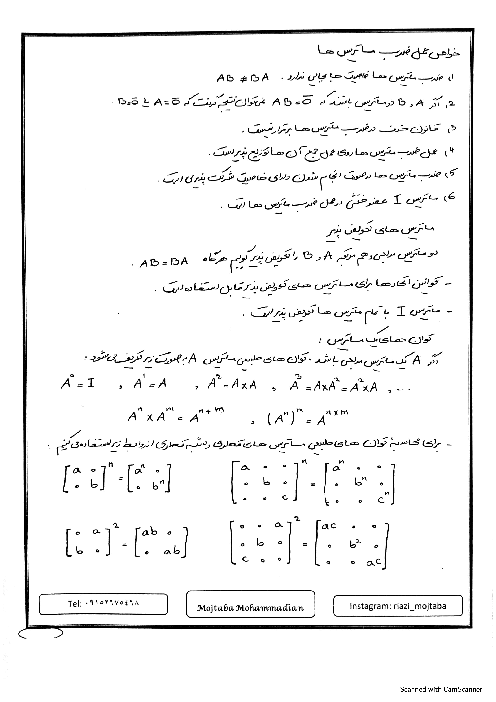 خواص عمل ضرب ماتریس ها
۱. ضرب ماتریس ها خاصیت جابجایی ندارد . AB ≠ BA
۲. اگر A و B دو ماتریس باشند که AB = Ō نمی توان نتیجه گرفت که A = Ō یا B = Ō .
۳. قانون حذف در ضرب ماتریس ها برقرار نیست .
۴. عمل ضرب ماتریس ها روی عمل جمع آن ها توزیع پذیر است .
۵. ضرب ماتریس ها در صورت انجام شدن دارای خاصیت شرکت پذیری است .
۶. ماتریس I عضو خنثی در عمل ضرب ماتریس ها است .
ماتریس های تعویض پذیر
دو ماتریس مربعی و هم مرتبه A و B را تعویض پذیر گوییم هرگاه AB = BA .
- قوانین اتحادها برای ماتریس های تعویض پذیر قابل استفاده است .
- ماتریس I با تمام ماتریس ها تعویض پذیر است .
توان های یک ماتریس :
اگر A یک ماتریس مربعی باشد . توان های طبیعی ماتریس A به صورت زیر تعریف می شود .
A⁰ = I , A¹ = A , A² = A×A , A³ = A×A² = A²×A , ...
Aⁿ × Aᵐ = Aⁿ⁺ᵐ , (Aⁿ)ᵐ = Aⁿˣᵐ
- برای محاسبه توان های طبیعی ماتریس های قطری و شبه قطری از روابط زیر استفاده می کنیم .
[a ० ; ० b]ⁿ = [aⁿ ० ; ० bⁿ] [a ० ० ; ० b ० ; ० ० c]ⁿ = [aⁿ ० ० ; ० bⁿ ० ; ० ० cⁿ]
[० a ; b ०]² = [ab ० ; ० ab] [० ० a ; ० b ० ; c ० ०]² = [ac ० ० ; ० b² ० ; ० ० ac]
Tel: ۰۹۱۵۲۹۷۵۴۹۸
Mojtaba Mohammadian
Instagram: riazi_mojtaba
Scanned with CamScanner